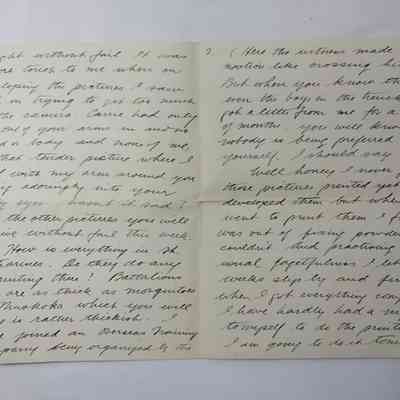 ght without fail It was
re tough to me when in
loping the pictures I saw
in trying to get too much
the camera Carrie had only
out of your arms in and no
d a body and none of me,
that tender picture where I
with my arm around you
adoringly into your
eyes. Wasn't it sad?
the other pictures you will
ive without fail this week.
How is everything in St.
Do they do any
there? Battalions
are as thick as mosquitoes
which you will
is rather thickish. I
e joined an Overseas Training
pany being organized by the
2. (Here the witness made
motion like crossing hi
But when you know th
even the boys in the trench
got a letter from me for a
of months you will know
nobody is being preferred
yourself. I should say
Well honey I never g
those pictures printed yet
developed them but when
went to print them I f
was out of fixing powder
couldn't find practising
usual forgetfulness I let
weeks slip by and fin
when I got everything comp
I have hardly had a m
to myself to do the printi
I am going to do it tom